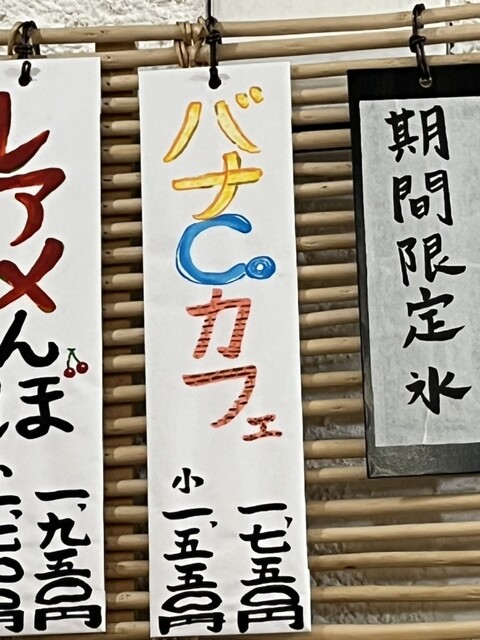 期間限定氷
バナC。カフェ
一、七五〇円
小一、五五〇円
アメ
んぼ
一、九五〇円